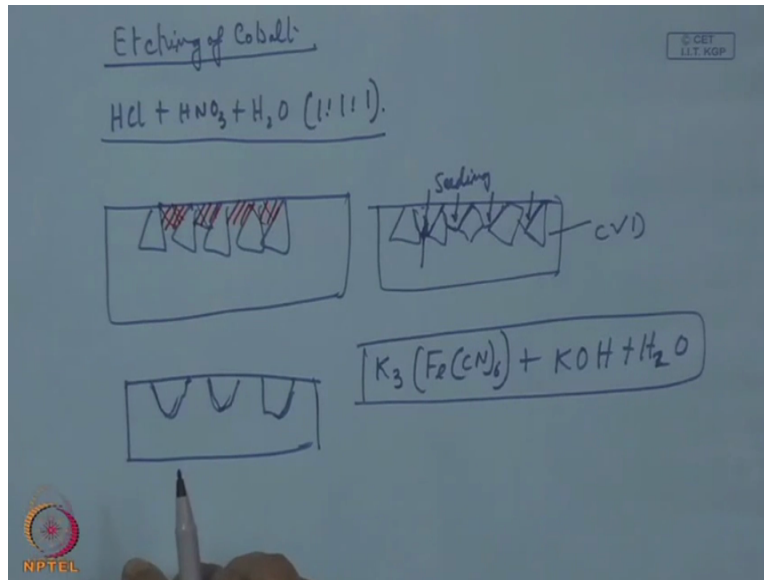 Etching of Cobalt.
© CET
I.I.T. KGP
HCl + HNO3 + H2O (1:1:1).
Seeding
CVD
K3 (Fe(CN)6) + KOH + H2O
NPTEL